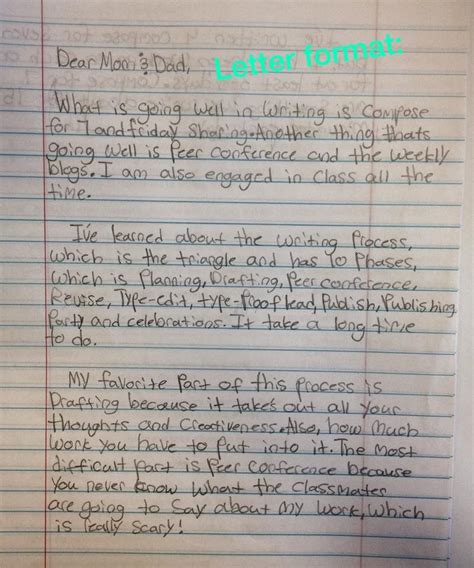 Letter format:
Dear Mom & Dad,
What is going well in writing is Compose
for 7 and friday sharing. Another thing thats
going well is Peer conference and the weekly
blogs. I am also engaged in class all the
time.
I've learned about the writing Process,
which is the triangle and has 10 Phases,
which is Planning, Drafting, Peer conference,
Revise, Type-edit, type-Proof lead, Publish, Publishing
Party and celebrations. It take a long time
to do.
My favorite Part of this Process is
Drafting because it takes out all your
thoughts and Creativeness. Also, how much
work you have to put into it. The most
difficult part is Peer Conference because
You never know what the classmates
are going to say about my work, which
is really scary!